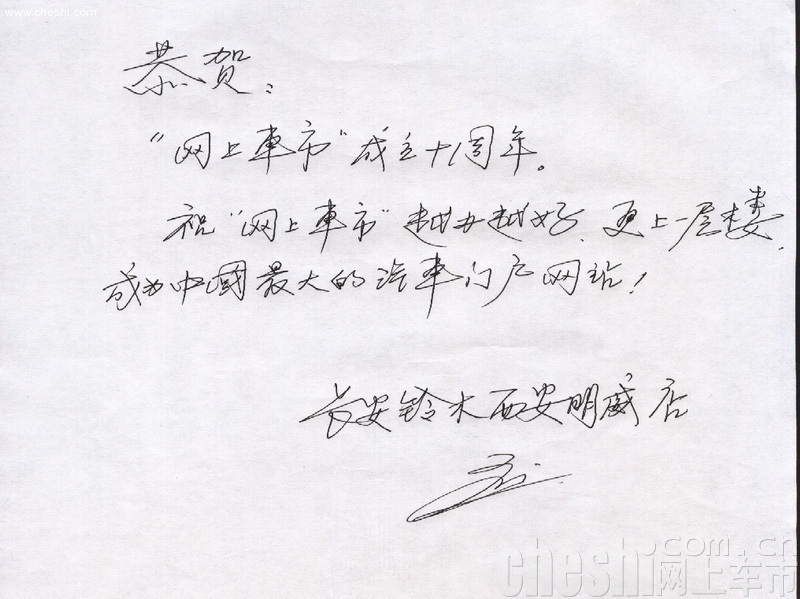 www.cheshi.com
恭贺:
“网上車市”成立十周年。
祝“网上車市”越办越好、更上一层楼,
成为中國最大的汽車门户网站!
长安铃木西安明威店
cheshi.com.cn
网上车市